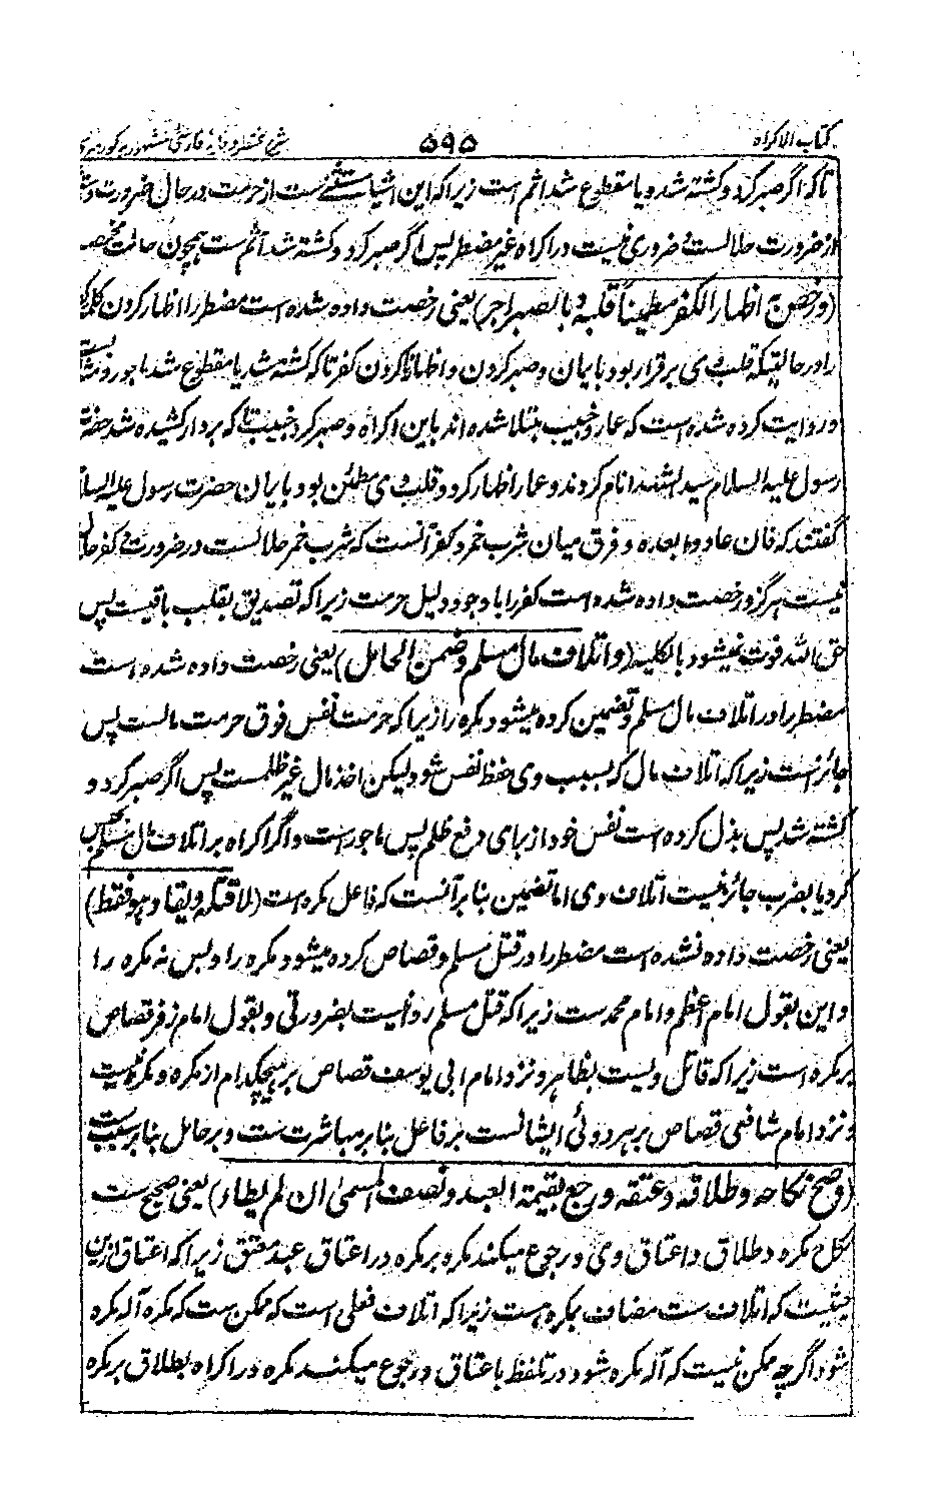 کتاب الاکراه ۵۹۵ شرح مختصر وقایه فارسی مشهور به کورمیری
تاکه اگر صبر کرد و کشته شد و یا مقطوع شد آثم است زیرا که این اشیا مستثنی ست از حرمت در حال ضرورت و
از ضرورت حلالست و ضروری نیست در اکراه غیر مضطر پس اگر صبر کرد و کشته شد آثم ست همچون حالت مخمصه
(و رخص به اظهار الکفر مطمئناً قلبه و بالصبر اجر) یعنی رخصت داده شده است مضطر را اظهار کردن کلمه کفر
را در حالتیکه قلب وی برقرار بود بایمان و صبر کردن و اظهار ناکردن کفر تاکه کشته شد یا مقطوع شد ماجور
و روایت کرده شده است که عمار و خبیب مبتلا شده اند باین اکراه و صبر کرد خبیب تا که بردار کشیده شد حضرت
رسول علیه السلام سید الشهدا نام کردند و عمار اظهار کرد و قلب وی مطمئن بود بایمان حضرت رسول علیه السلام
گفتند که فان عادوا فعد و فرق میان شرب خمر و کفر آنست که شرب خمر حلالست در ضرورت و کفر حلال
نیست هرگز و رخصت داده شده است کفر را باوجود دلیل حرمت زیرا که تصدیق بقلب باقیست پس
حق الله فوت نمیشود بالکلیه (و اتلاف مال مسلم و ضمن الحامل) یعنی رخصت داده شده است
مضطر را در اتلاف مال مسلم و تضمین کرده میشود مکره را زیرا که حرمت نفس فوق حرمت مالست پس
جائز است زیرا که اتلاف مال که بسبب وی حفظ نفس شود لیکن اخذ مال غیر ظلمست پس اگر صبر کرد و
کشته شد پس بذل کرده است نفس خود از برای دفع ظلم پس ماجورست و اگر اکراه بر اتلاف مال مسلم بحبس
کرد یا بضرب جائز نیست اتلاف وی اما تضمین بنا بر آنست که فاعل مکره است (لا قتله و یقاد هو فقط)
یعنی رخصت داده نشده است مضطر را در قتل مسلم و قصاص کرده میشود مکره را و بس نه مکره را
و این بقول امام اعظم و امام محمد ست زیرا که قتل مسلم روا نیست بضرورتی و بقول امام زفر قصاص
بر مکره است زیرا که قاتل ویست بظاهر و نزد امام ابی یوسف قصاص بر هیچکدام از مکره و مکره نیست
و نزد امام شافعی قصاص بر هر دوئی ایشانست بر فاعل بنا بر مباشرت ست و بر حامل بنا بر سبب ست
(و صح نکاحه و طلاقه و عتقه و رجع بقیمة العبد و نصف المسمی ان لم یطاء) یعنی صحیح ست
نکاح مکره و طلاق و اعتاق وی و رجوع میکند مکره بر مکره در اعتاق عبد معتق زیرا که اعتاق ازین
حیثیت که اتلاف ست مضاف بمکره است زیرا که اتلاف فعلی است که ممکن ست که مکره آله مکره
شود اگرچه ممکن نیست که آله مکره شود در تلفظ باعتاق و رجوع میکند مکره در اکراه بطلاق بر مکره